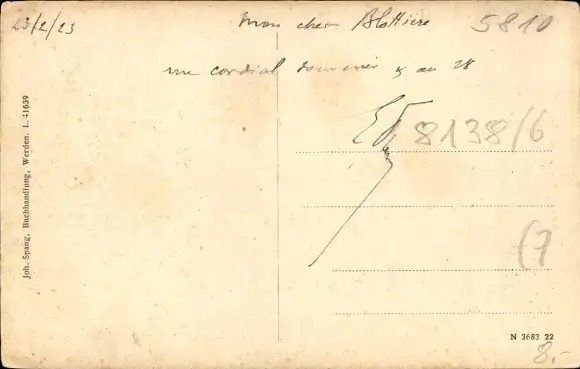 23/2/23
Mon cher Blottiere
5810
un cordial souvenir & au 28
8138/6
(7
Joh. Spang, Buchhandlung, Werden. L. 41639
N 3683 22
8.-